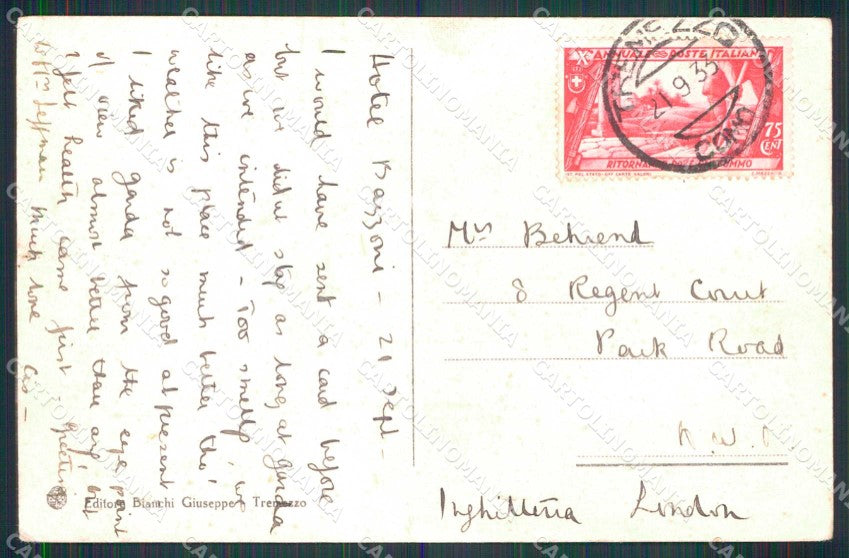 Hotel Bazzoni - 21 Sept -
I would have sent a card before
but we didnt stay as long at garda
as we intended - Too smelly, we
like this place much better tho'
weather is not so good at present
I liked garda from the eye point
of view almost better than any but
I felt health came first - greetings
to Mrs much love
ANNUALE POSTE ITALIANE
75 CENT
IST. POL. STATO - OFF. CARTE-VALORI
TREMEZZO
21.9.33
COMO
Mrs Behrend
8 Regent Court
Park Road
N.W.
Inghilterra London
Editore Bianchi Giuseppe - Tremezzo
CARTOLINOMANIA